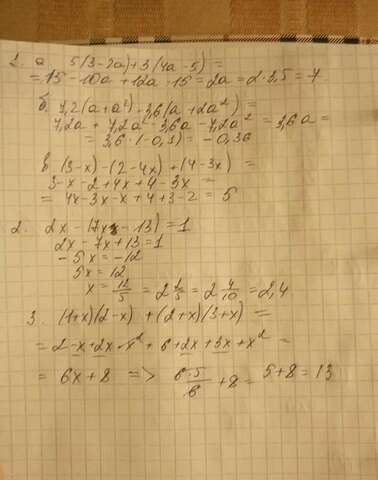 1. а 5(3-2a)+3(4a-5)=
=15-10a+12a-15=2a=2·3,5=7
б 7,2(a+a²)-3,6(a+2a²)=
7,2a+7,2a²-3,6a-7,2a²=3,6a=
=3,6·(-0,1)=-0,36
в (3-x)-(2-4x)+(4-3x)=
3-x-2+4x+4-3x=
=4x-3x-x+4+3-2=5
2. 2x-(7x-13)=1
2x-7x+13=1
-5x=-12
5x=12
x=12/5=2 2/5=2 4/10=2,4
3. (1+x)(2-x)+(2+x)(3+x)=
=2-x+2x-x²+6+2x+3x+x²=
=6x+8 => 6·5/6+8=5+8=13